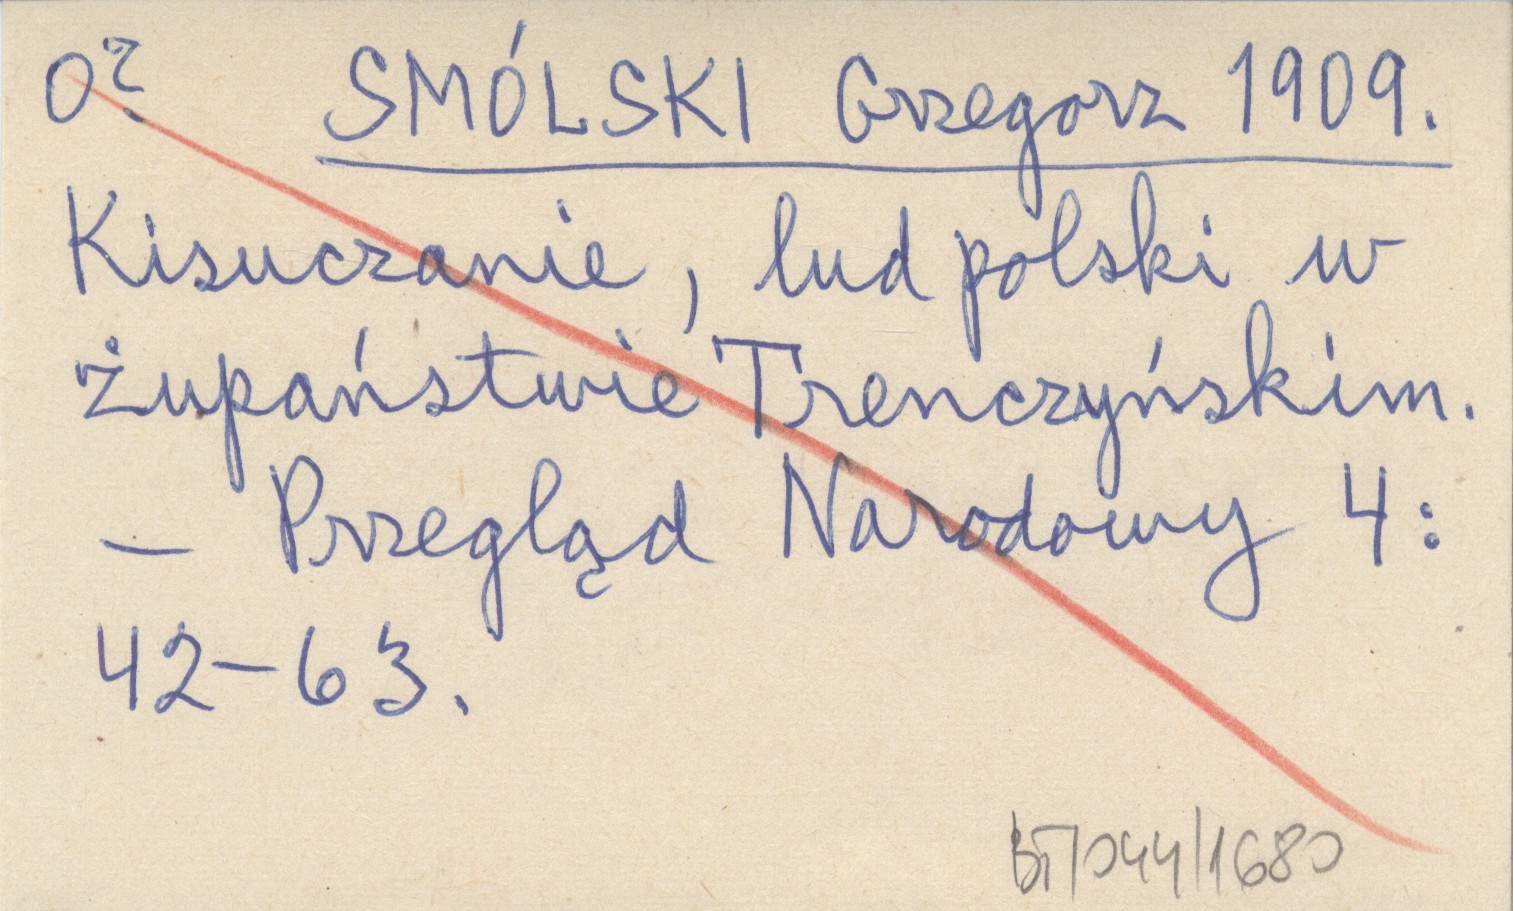 0? SMÓLSKI Grzegorz 1909.
Kisuczanie, lud polski w
żupaństwie Trenczyńskim.
— Przegląd Narodowy 4:
42-63.
BT/044/1680